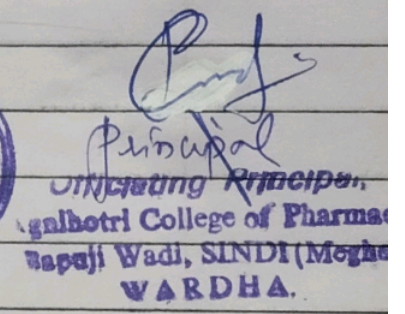 Principal
Officiating Principal
gnihotri College of Pharmac
Bapuji Wadi, SINDI (Megha
WARDHA.